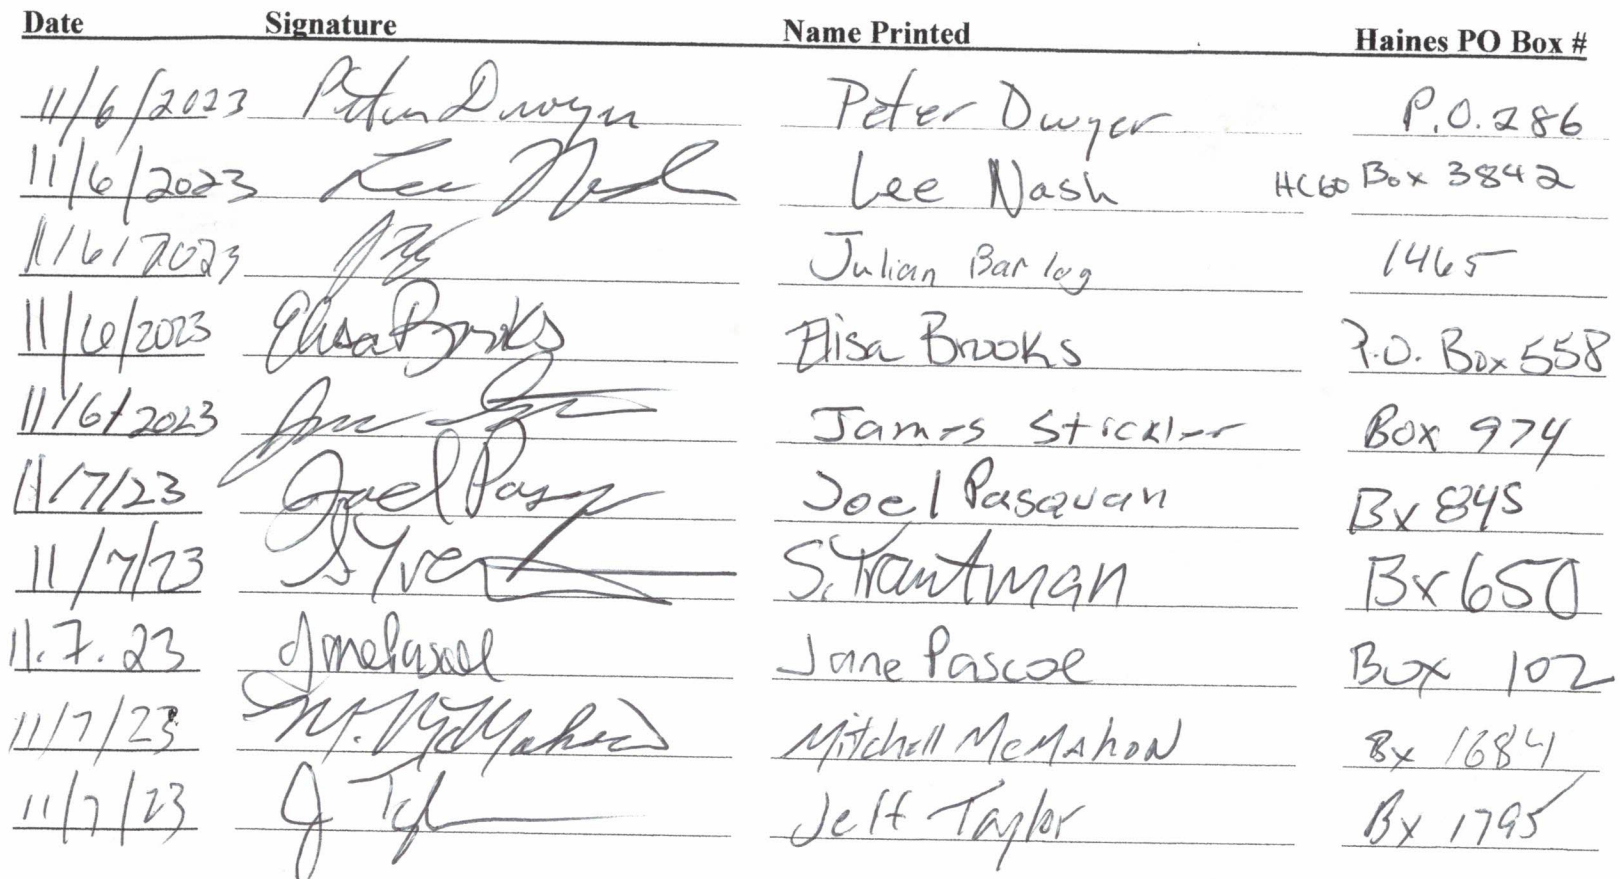 Date Signature Name Printed Haines PO Box #
11/6/2023 Peter Dwyer Peter Dwyer P.O. 286
11/6/2023 Lee Nash Lee Nash HC60 Box 3842
11/6/2023 Julian Barlog 1465
11/6/2023 Elisa Brooks Elisa Brooks P.O. Box 558
11/6/2023 James Strickler Box 974
11/7/23 Joel Pasq Joel Pasquan Bx 845
11/7/23 S. Trautman Bx 650
11.7.23 Jane Pascoe Jane Pascoe Box 102
11/7/23 M. McMahon Mitchell McMahon Bx
11/7/23 J Taylor Jeff Taylor Bx 1795